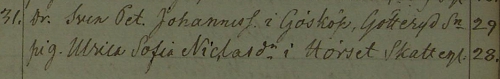 31. Dr. Sven Pet. Johanness. i Göskös, Götteryd Sn 29
pig. Ulrica Sofia Niclasdr i Horset Skattegl. 28.